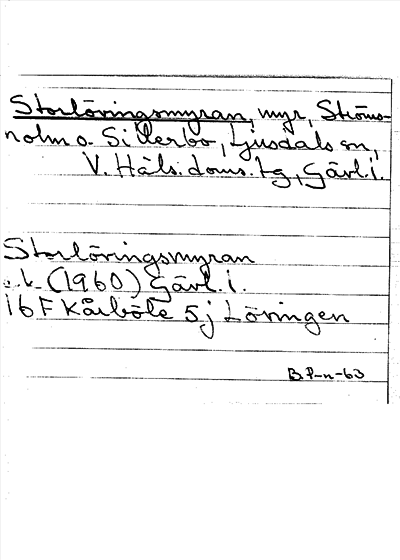 Storlöringsmyran, myr, Ströms-
holm o. Sillerbo, Ljusdals sn,
V. Häls. doms. tg, Gävl. l.
Storlöringsmyran
.k. (1960) Gävl. l.
16 F Kårböle 5 j Löringen
B.P-n-63